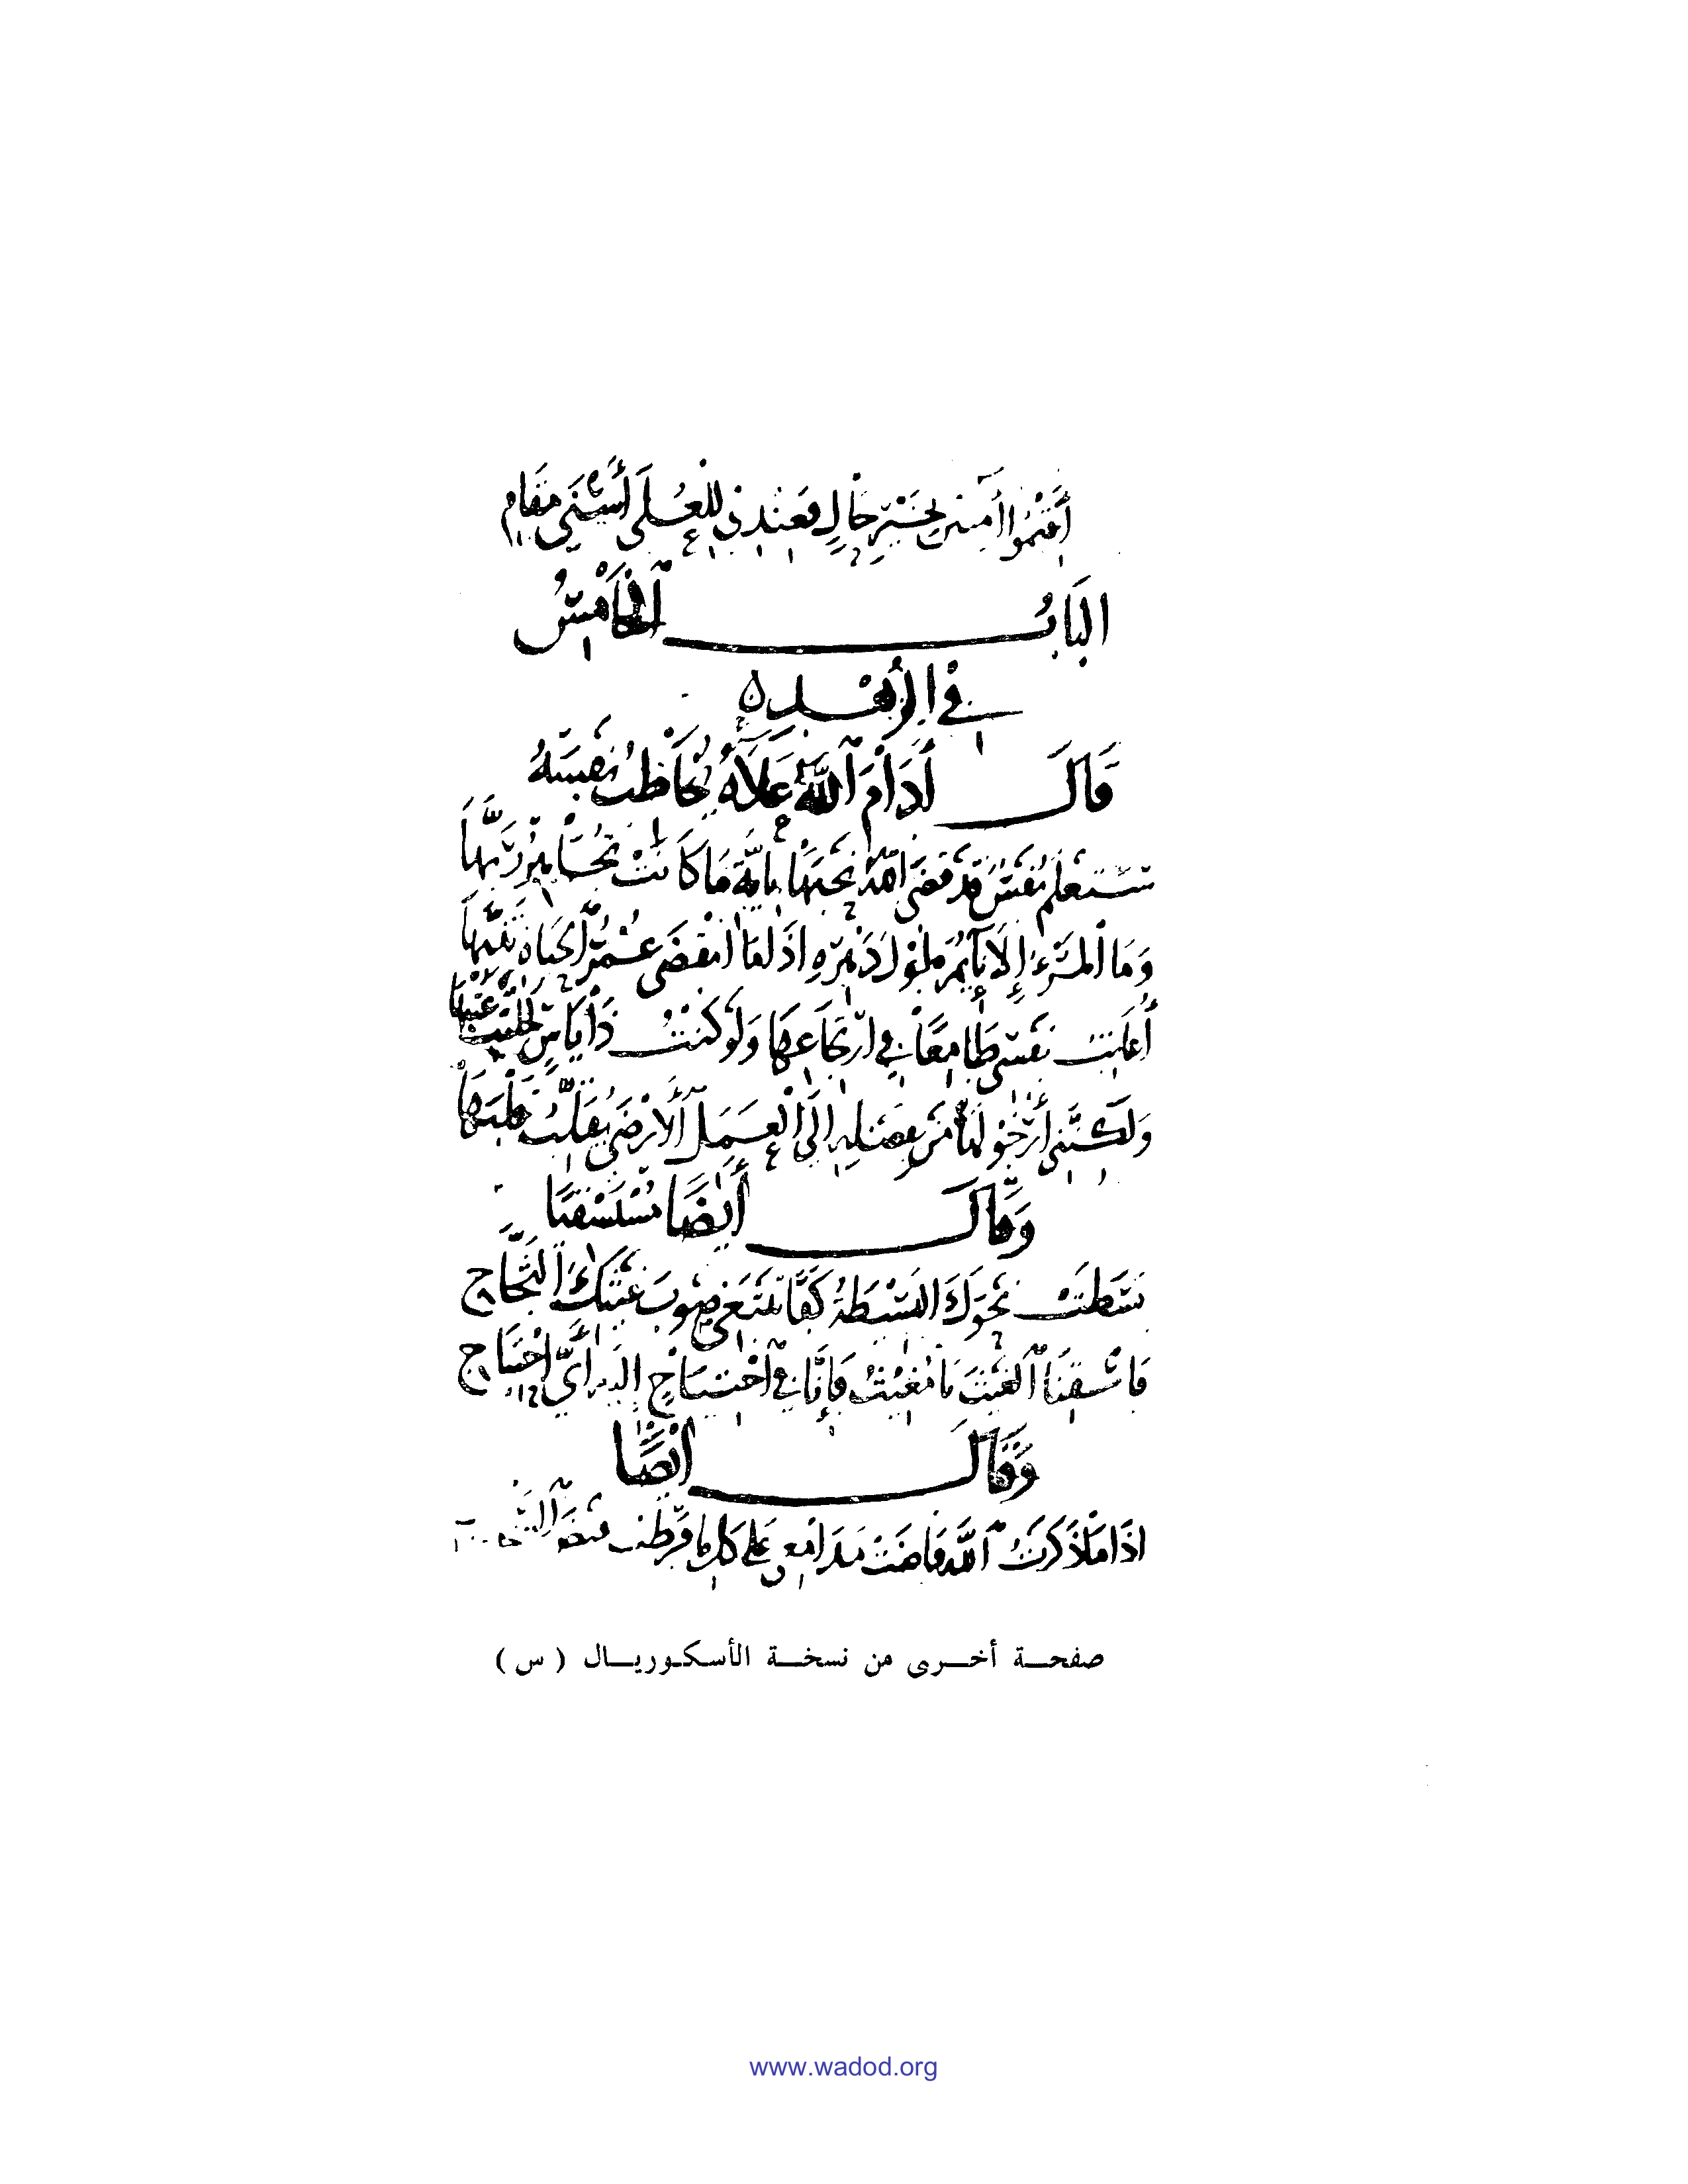 أَقِيمُوا آمنين بِخَيْرِ حَالٍ فَعِنْدِي لِلْعُلَى أَسْنَى مَقَامِ
البَابُ الخَامِسُ
في الزُّهْدِ
قَالَ أَدَامَ اللهُ عَلَاهُ يُخَاطِبُ نَفْسَهُ
سَتَعْلَمُ نَفْسٌ قَدْ قَضَى اللهُ نَحْبَهَا بِأَيَّةِ مَا كَانَتْ تُحَاسِبُ رَبَّهَا
وَمَا الْمَرْءُ إِلَّا نَائِمٌ طُولَ دَهْرِهِ إِذَا مَا انْقَضَى عُمْرُ الحَيَاةِ تَنَبَّهَا
أُعَاتِبُ نَفْسِي طَامِعًا فِي ارْتِجَاعِهَا وَلَوْ كُنْتُ ذَا يَأْسٍ لَخَلَّيْتُ عَتْبَهَا
وَلَكِنَّنِي أَرْجُو لَهَا مِنْ فَضْلِهِ إِلَى الْعَمَلِ الْأَرْضَى يُقَلِّبُ قَلْبَهَا
وَقَالَ أَيْضًا مُسْتَسْقِيًا
بَسَطَتْ نَحْوَكَ البَسِيطَةُ كَفًّا تَبْتَغِي صَوْبَ غَيْثِكَ الثَّجَّاجِ
فَاسْقِنَا الْغَيْثَ يَا مُغِيثُ فَإِنَّا فِي احْتِيَاجٍ إِلَيْهِ أَيِّ احْتِيَاجِ
وَقَالَ أَيْضًا
إِذَا مَا ذَكَرْتُ اللهَ فَاضَتْ مَدَامِعِي عَلَى كُلِّ مَا فَرَّطْتُ
صفحة أخرى من نسخة الأسكوريال ( س )
www.wadod.org